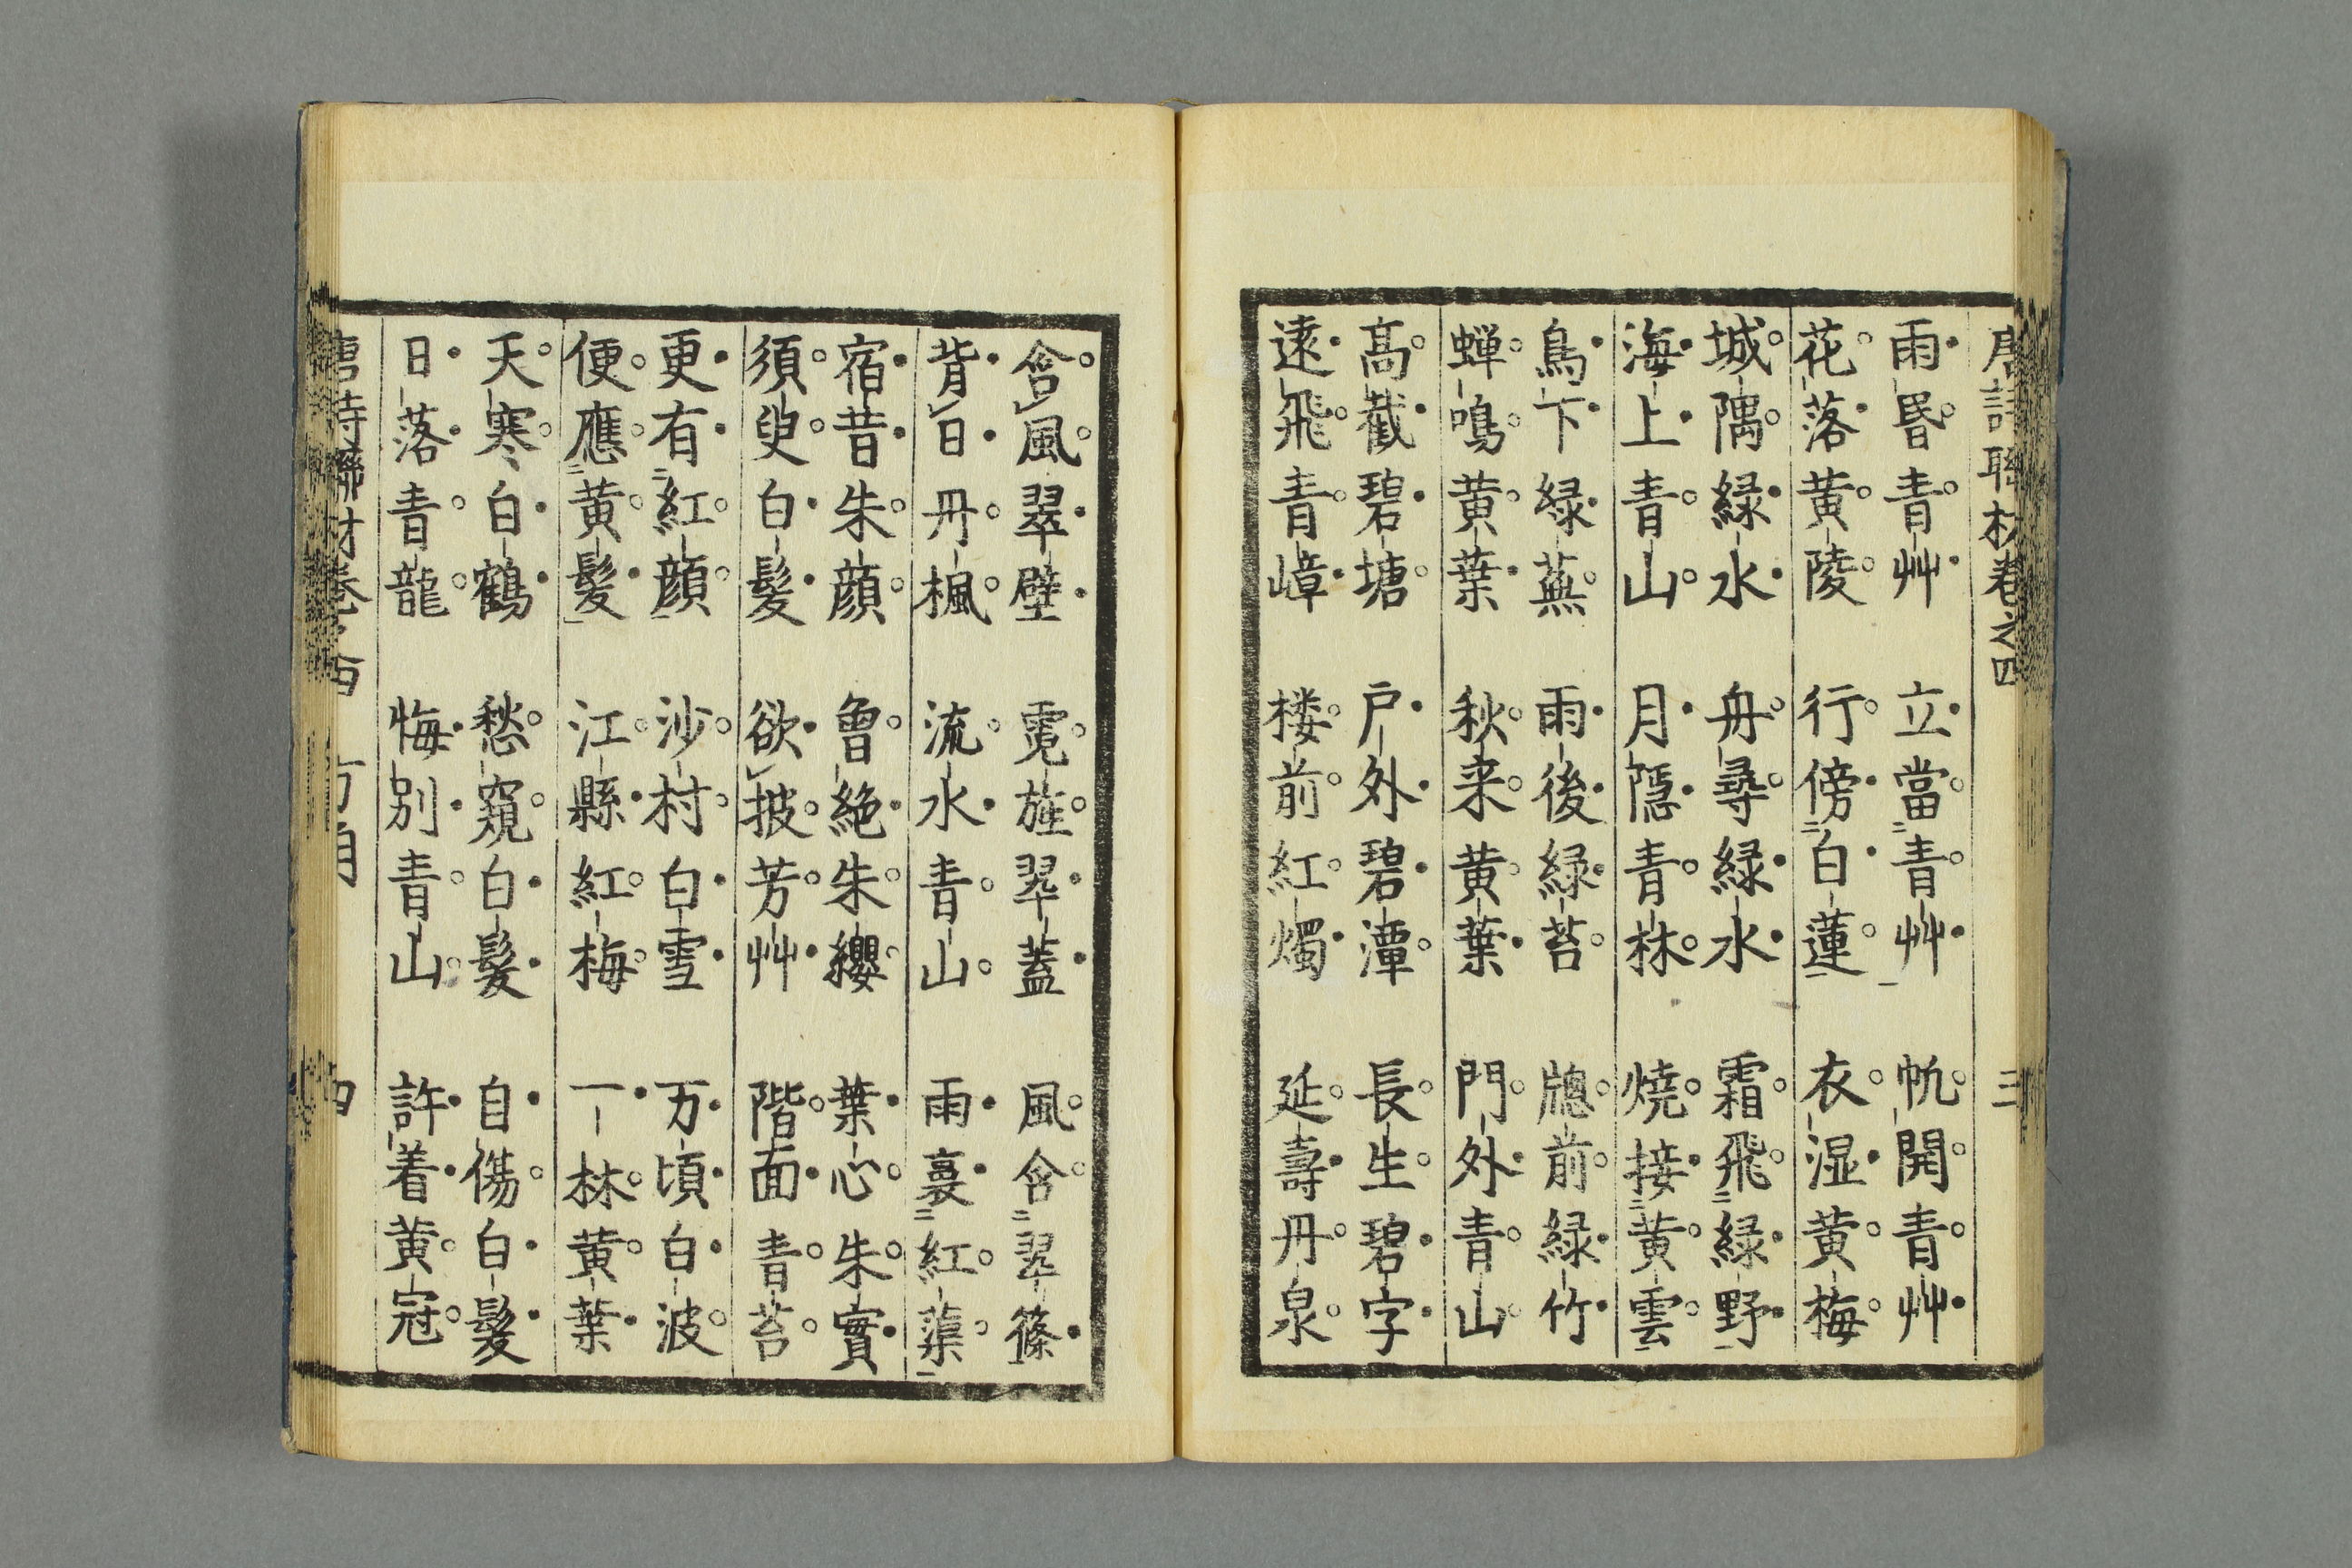 雨昏青艸 立當青艸 帆開青艸
花落黄陵 行傍白蓮 衣湿黄梅
城隅緑水 舟尋緑水 霜飛緑野
海上青山 月隱青林 焼接黄雲
鳥下緑蕪 雨後緑苔 牕前緑竹
蝉鳴黄葉 秋来黄葉 門外青山
高截碧塘 戸外碧潭 長生碧字
遠飛青嶂 楼前紅燭 延壽丹泉
含風翠壁 霓旌翠蓋 風含翠篠
背日丹楓 流水青山 雨裛紅蕖
宿昔朱顔 魯絶朱纓 葉心朱實
須臾白髪 欲披芳艸 階面青苔
更有紅顔 沙村白雪 万頃白波
便應黄髪 江縣紅梅 一林黄葉
天寒白鶴 愁窺白髪 自傷白髪
日落青龍 悔別青山 許着黄冠